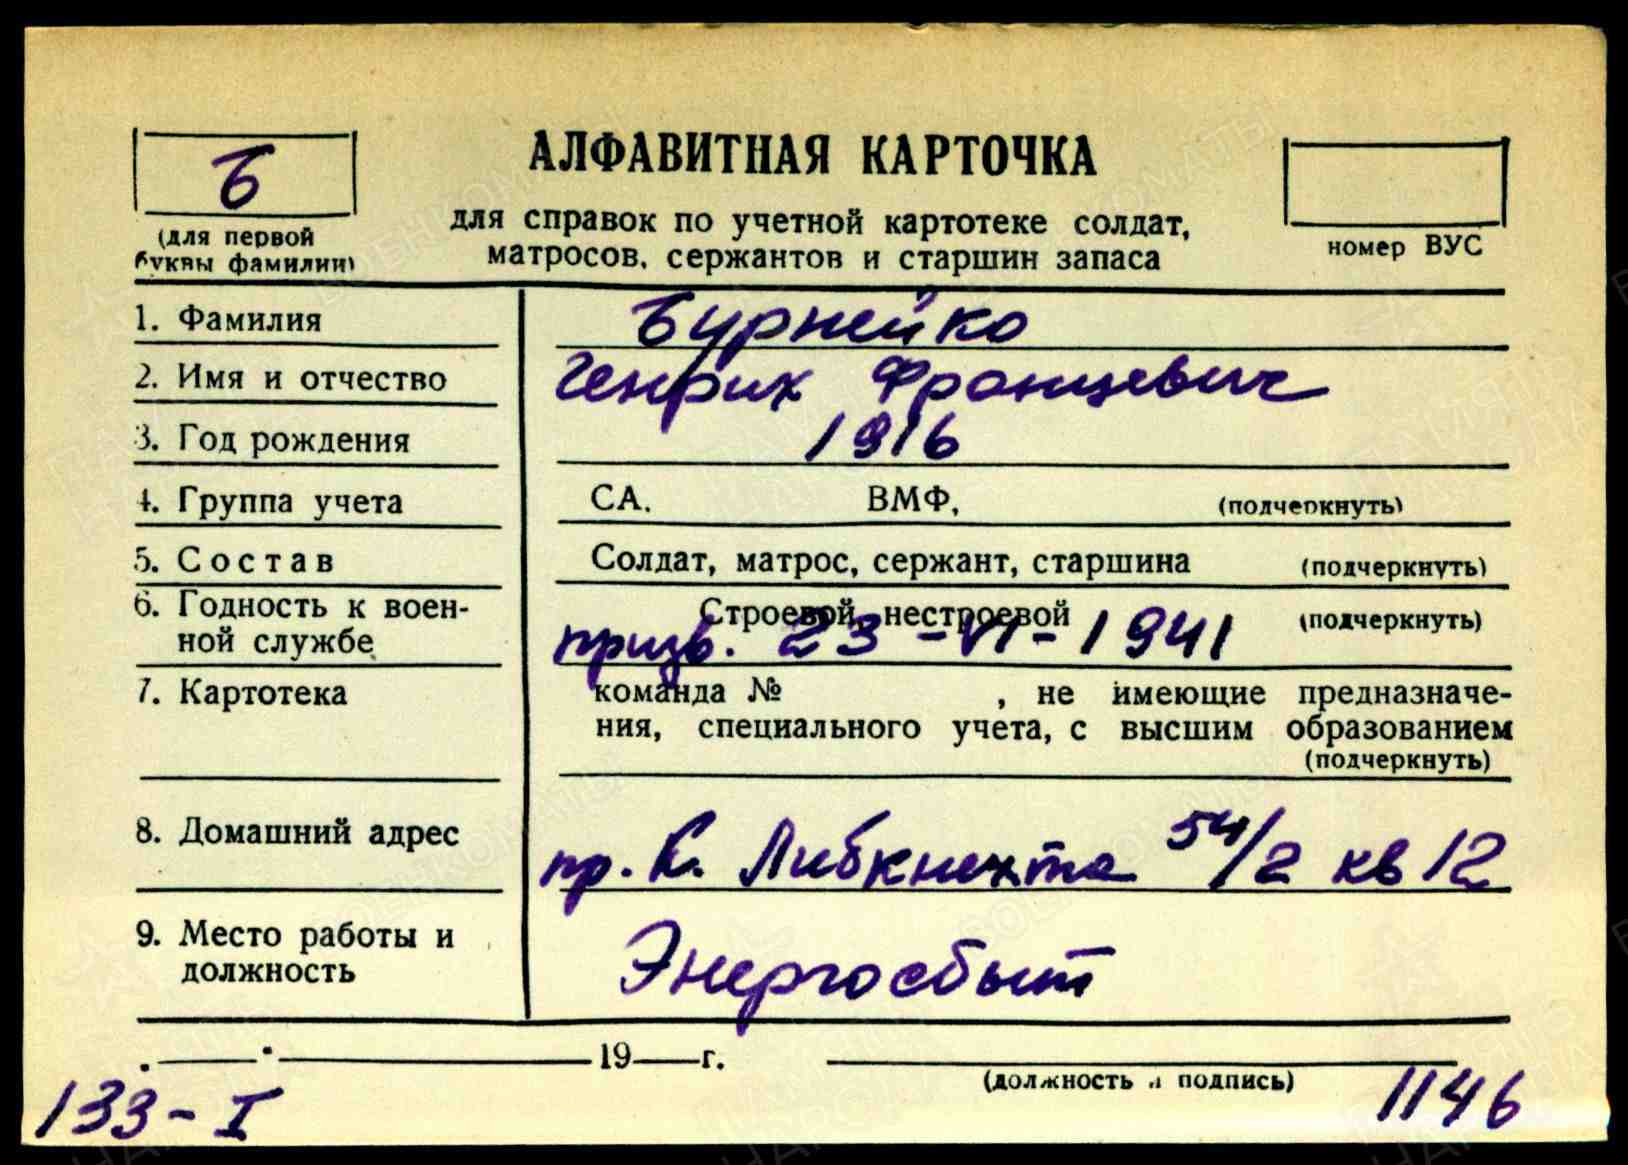 Б
АЛФАВИТНАЯ КАРТОЧКА
(для первой буквы фамилии)
для справок по учетной картотеке солдат,
матросов, сержантов и старшин запаса
номер ВУС
1. Фамилия Бурнейко
2. Имя и отчество Генрих Францевич
3. Год рождения 1916
4. Группа учета СА. ВМФ, (подчеркнуть)
5. Состав Солдат, матрос, сержант, старшина (подчеркнуть)
6. Годность к воен-
ной службе
Строевой, нестроевой (подчеркнуть)
призв. 23-VI-1941
7. Картотека команда № , не имеющие предназначе-
ния, специального учета, с высшим образованием
(подчеркнуть)
8. Домашний адрес пр. К. Либкнехта 54/2 кв 12
9. Место работы и
должность
Энергосбыт
19 г.
(должность и подпись)
133-I
1146
ВОЕНКОМАТЫ
ПАМЯТЬ НАРОДА